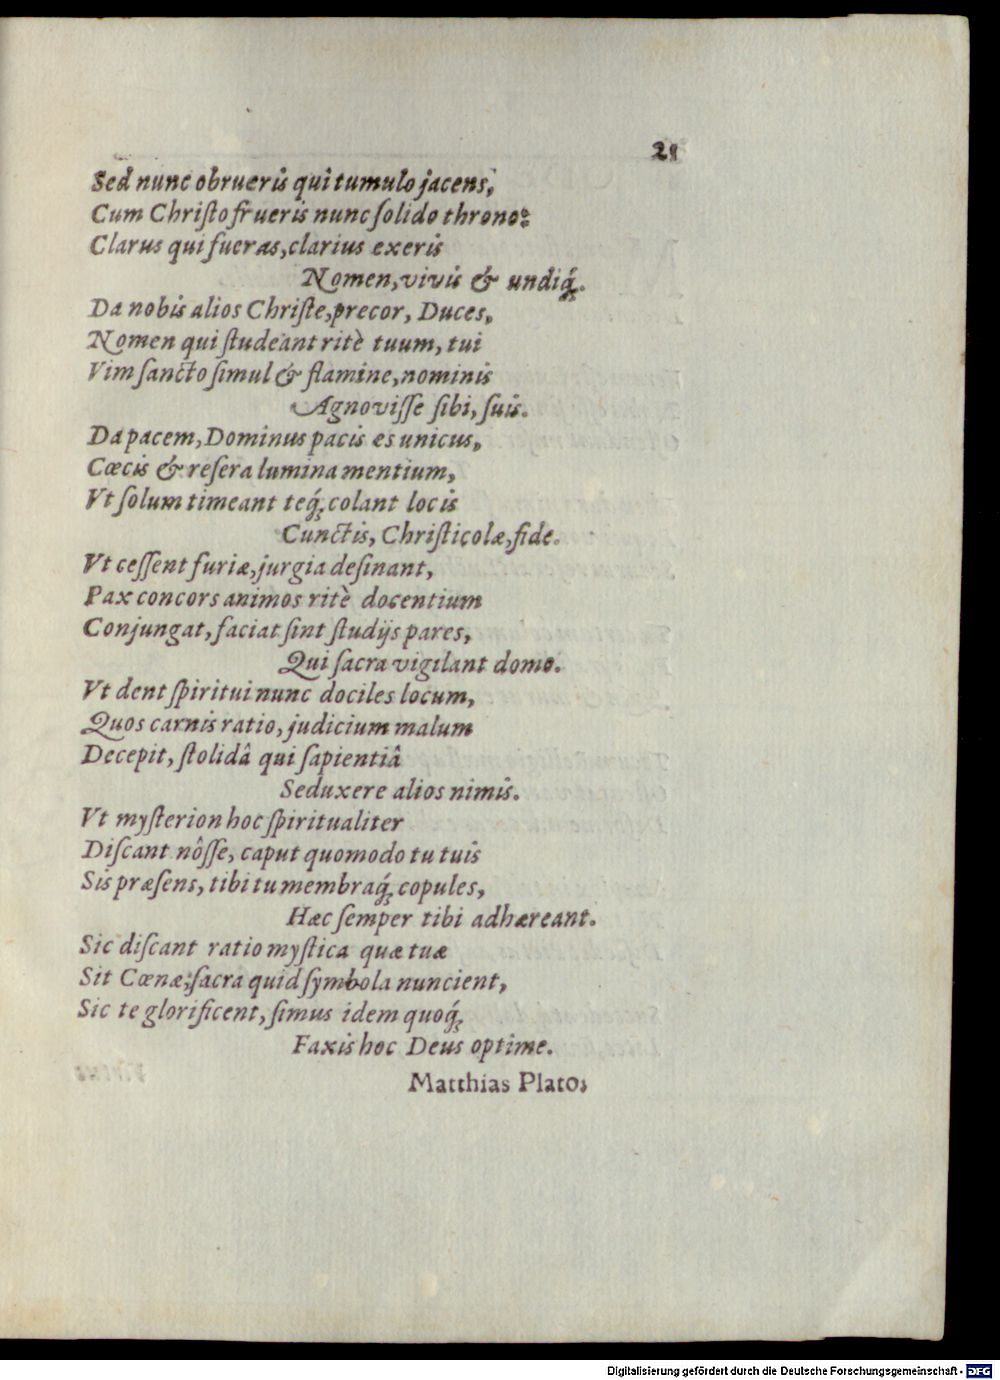 21
Sed nunc obrueris qui tumulo jacens,
Cum Christo frueris nunc solido throno:
Clarus qui fueras, clarius exeris
Nomen, vivis & undiq́;.
Da nobis alios Christe, precor, Duces,
Nomen qui studeant ritè tuum, tui
Vim sancto simul & flamine, nominis
Agnovisse sibi, suis.
Da pacem, Dominus pacis es unicus,
Cœcis & resera lumina mentium,
Vt solum timeant teq́; colant locis
Cunctis, Christicolæ, fide.
Vt cessent furiæ, jurgia desinant,
Pax concors animos ritè docentium
Conjungat, faciat sint studijs pares,
Qui sacra vigilant domo.
Vt dent spiritui nunc dociles locum,
Quos carnis ratio, judicium malum
Decepit, stolidâ qui sapientiâ
Seduxere alios nimis.
Vt mysterion hoc spiritualiter
Discant nôsse, caput quomodo tu tuis
Sis præsens, tibi tu membraq́; copules,
Hæc semper tibi adhæreant.
Sic discant ratio mystica quæ tuæ
Sit Cœnæ; sacra quid symbola nuncient,
Sic te glorificent, simus idem quoq́;
Faxis hoc Deus optime.
Matthias Plato;
Digitalisierung gefördert durch die Deutsche Forschungsgemeinschaft - DFG